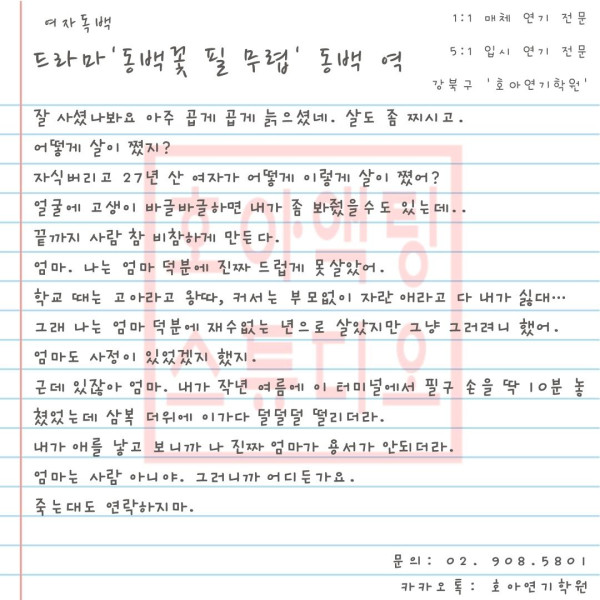 여자독백
1:1 매체 연기 전문
드라마 '동백꽃 필 무렵' 동백 역
5:1 입시 연기 전문
강북구 '호아연기학원'
잘 사셨나봐요 아주 곱게 곱게 늙으셨네. 살도 좀 찌시고.
어떻게 살이 쪘지?
자식버리고 27년 산 여자가 어떻게 이렇게 살이 쪘어?
얼굴에 고생이 바글바글하면 내가 좀 봐줬을수도 있는데..
끝까지 사람 참 비참하게 만든다.
엄마. 나는 엄마 덕분에 진짜 드럽게 못살았어.
학교 때는 고아라고 왕따, 커서는 부모없이 자란 애라고 다 내가 싫대…
그래 나는 엄마 덕분에 재수없는 년으로 살았지만 그냥 그러려니 했어.
엄마도 사정이 있었겠지 했지.
근데 있잖아 엄마. 내가 작년 여름에 이 터미널에서 필구 손을 딱 10분 놓
쳤었는데 삼복 더위에 이가다 덜덜덜 떨리더라.
내가 애를 낳고 보니까 나 진짜 엄마가 용서가 안되더라.
엄마는 사람 아니야. 그러니까 어디든가요.
죽는대도 연락하지마.
호아액팅
스튜디오
문의: 02. 908.5801
카카오톡: 호아연기학원